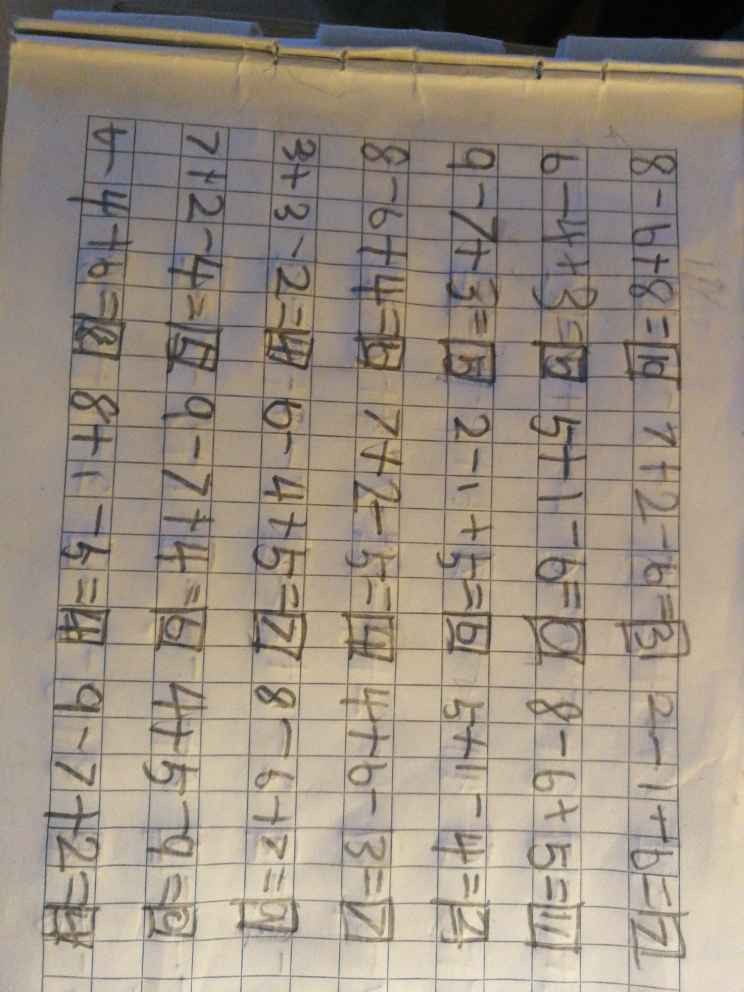 8-6+8=10 7+2-6=3 2-1+6=7
6-4+3=5 5+1-6=0 8-6+5=11
9-7+3=5 2-1+5=6 5+1-4=2
8-6+4=6 7+2-5=4 4+6-3=7
3+3-2=4 6-4+5=7 8-6+7=9
7+2-4=5 9-7+4=6 4+5-9=0
-4+6= 8+1-5=4 9-7+2=4